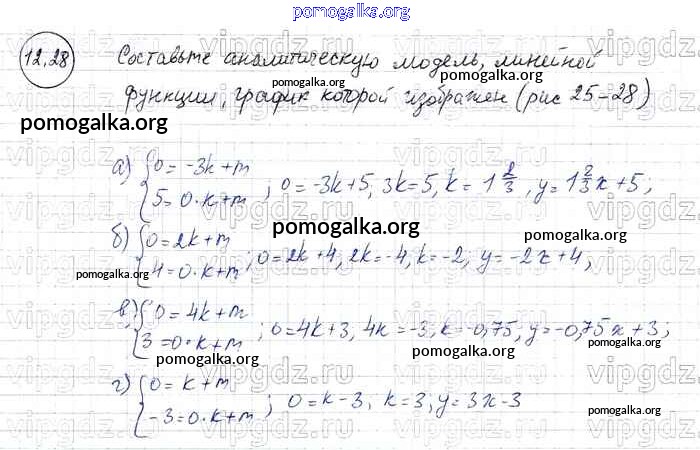 pomogalka.org
12.28 Составьте аналитическую модель, линейной
pomogalka.org
функции, график которой изображен (рис 25-28)
pomogalka.org
а) {0=-3k+m
5=0·k+m ; 0=-3k+5, 3k=5, k=1 2/3, y=1 2/3x+5;
pomogalka.org
б) {0=2k+m
pomogalka.org
4=0·k+m ; 0=2k+4, 2k=-4, k=-2, y=-2x+4;
pomogalka.org
в) {0=4k+m
3=0·k+m ; 0=4k+3, 4k=-3, k=-0,75, y=-0,75x+3;
pomogalka.org
pomogalka.org
pomogalka.org
г) {0=k+m
-3=0·k+m ; 0=k-3, k=3, y=3x-3
pomogalka.org
vipgdz.ru